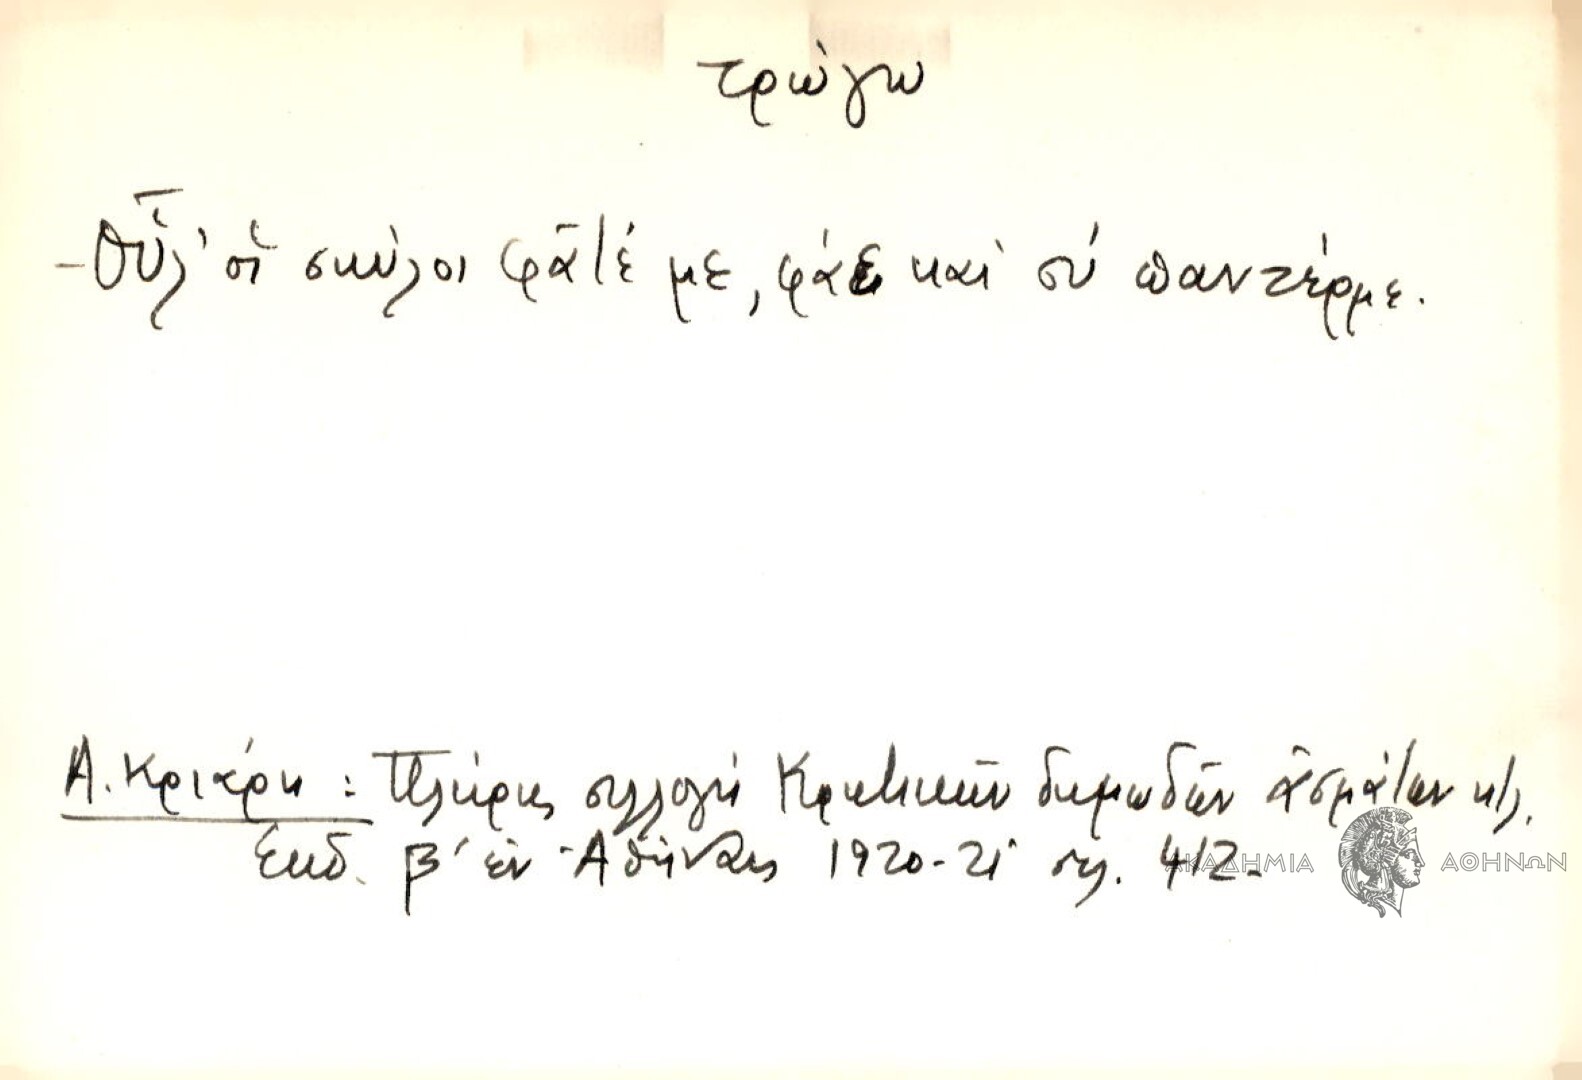 τρώγω
- Οὗλ' οἱ σκύλοι φᾶτέ με, φάε καὶ σύ παντέρμε.
Α. Κριάρη : Πλήρης συλλογή Κρητικῶν δημωδῶν ᾀσμάτων κτλ.
ἔκδ. β' ἐν Ἀθήναις 1920-21 σελ. 412.
ΑΚΑΔΗΜΙΑ ΑΘΗΝΩΝ